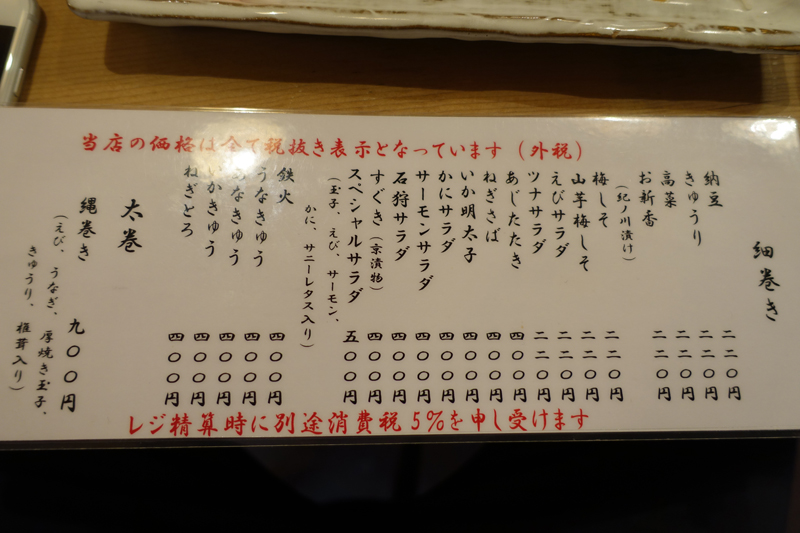 当店の価格は全て税抜き表示となっています(外税)
細巻き
納豆 二二〇円
きゅうり 二二〇円
高菜 二二〇円
お新香 二二〇円
(紀ノ川漬け)
梅しそ 二二〇円
山芋梅しそ 二二〇円
えびサラダ 二二〇円
ツナサラダ 二二〇円
あじたたき 四〇〇円
ねぎさば 四〇〇円
いか明太子 四〇〇円
かにサラダ 四〇〇円
サーモンサラダ 四〇〇円
石狩サラダ 四〇〇円
すぐき(京漬物) 四〇〇円
スペシャルサラダ 五〇〇円
(玉子、えび、サーモン、
かに、サニーレタス入り)
鉄火 四〇〇円
うなきゅう 四〇〇円
あなきゅう 四〇〇円
いかきゅう 四〇〇円
ねぎとろ 四〇〇円
太巻
縄巻き 九〇〇円
(えび、うなぎ、厚焼き玉子、
きゅうり、椎茸入り)
レジ精算時に別途消費税5%を申し受けます